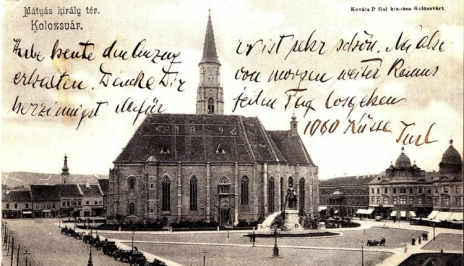 Mátyás király tér.
Kolozsvár.
Kováts P fiai kiadása Kolozsvárt.
Habe heute den Anzug
erhalten. Danke Dir
herzinnigst dafür
er ist sehr schön.
von morgen weiter
jeden Tag
1000 Küsse